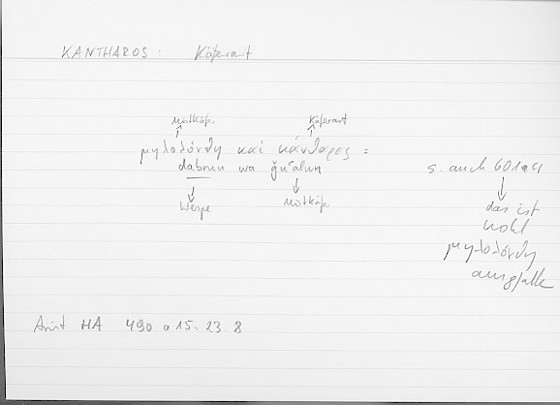 KANTHAROS: Käferart
Mistkäf. Käferart
μηλολόνθη καὶ κάνθαρος =
dabrun wa ǧuʿalun
Wespe Mistkäf.
s. auch 601a4
das ist
wohl
μηλολόνθη
ausgefalle
Arist HA 490 a 15. 23 8